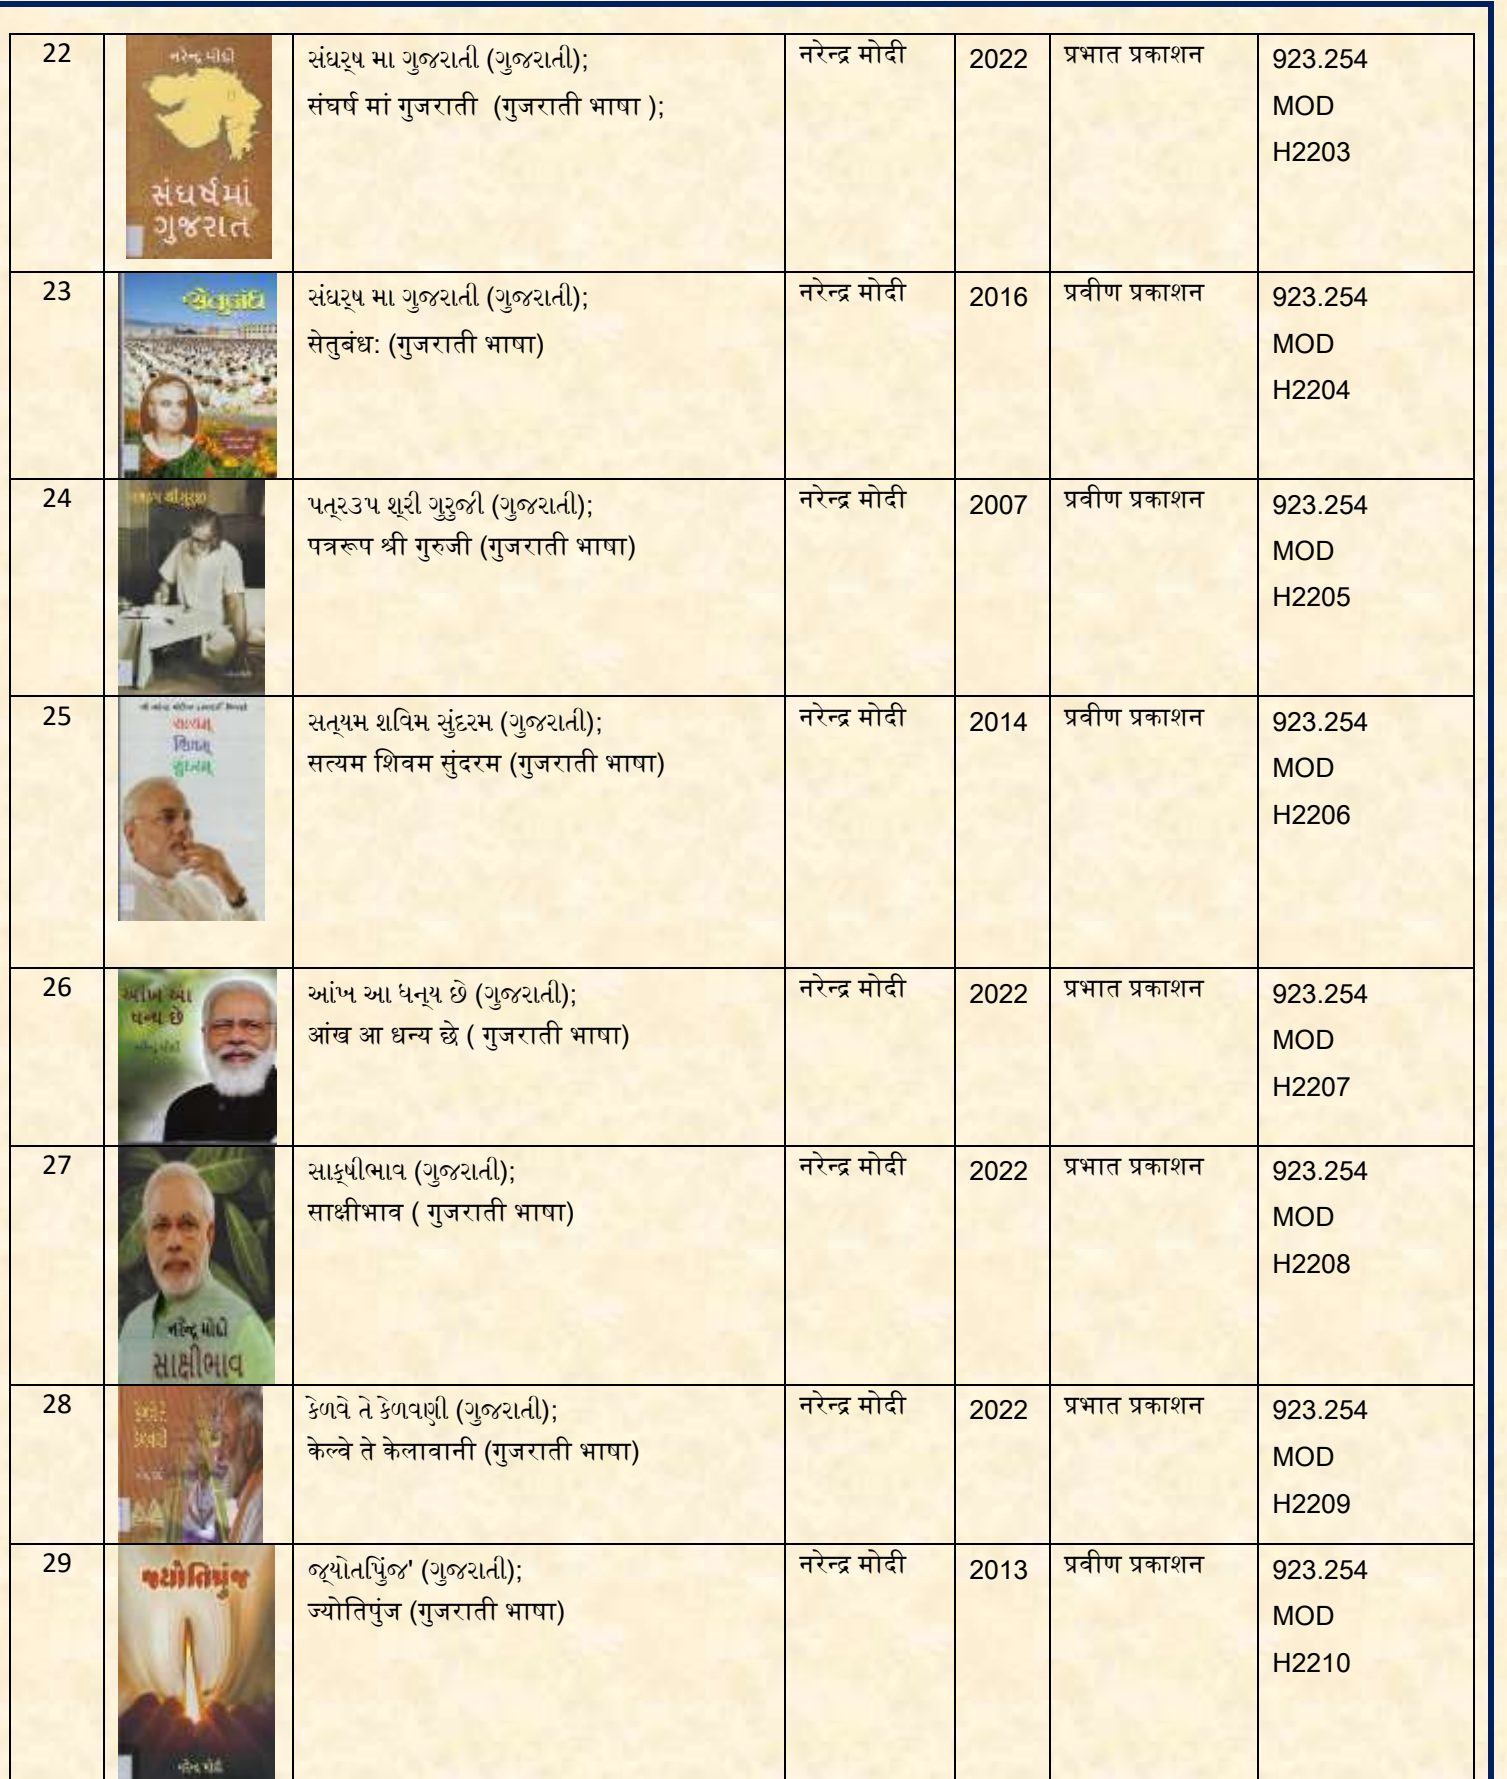 22
નરેન્દ્ર મોદી
સંઘર્ષમાં
ગુજરાત
સંઘર્ષ મા ગુજરાતી (ગુજરાતી);
संघर्ष मां गुजराती (गुजराती भाषा );
नरेन्द्र मोदी
2022
प्रभात प्रकाशन
923.254
MOD
H2203
23
સેતુબંધ
સંઘર્ષ મા ગુજરાતી (ગુજરાતી);
सेतुबंध: (गुजराती भाषा)
नरेन्द्र मोदी
2016
प्रवीण प्रकाशन
923.254
MOD
H2204
24
પત્રરૂપ શ્રીગુરુજી
પત્ર૩પ શ્રી ગુરુજી (ગુજરાતી);
पत्ररूप श्री गुरुजी (गुजराती भाषा)
नरेन्द्र मोदी
2007
प्रवीण प्रकाशन
923.254
MOD
H2205
25
સત્યમ્
શિવમ્
સુંદરમ્
સત્યમ શવિમ સુંદરમ (ગુજરાતી);
सत्यम शिवम सुंदरम (गुजराती भाषा)
नरेन्द्र मोदी
2014
प्रवीण प्रकाशन
923.254
MOD
H2206
26
આંખ આ
ધન્ય છે
નરેન્દ્ર મોદી
આંખ આ ધન્ય છે (ગુજરાતી);
आंख आ धन्य छे ( गुजराती भाषा)
नरेन्द्र मोदी
2022
प्रभात प्रकाशन
923.254
MOD
H2207
27
નરેન્દ્ર મોદી
સાક્ષીભાવ
સાક્ષીભાવ (ગુજરાતી);
साक्षीभाव ( गुजराती भाषा)
नरेन्द्र मोदी
2022
प्रभात प्रकाशन
923.254
MOD
H2208
28
કેળવે તે
કેળવણી
કેળવે તે કેળવણી (ગુજરાતી);
केल्वे ते केलावानी (गुजराती भाषा)
नरेन्द्र मोदी
2022
प्रभात प्रकाशन
923.254
MOD
H2209
29
જ્યોતિપુંજ
નરેન્દ્ર મોદી
જ્યોતપિુંજ' (ગુજરાતી);
ज्योतिपुंज (गुजराती भाषा)
नरेन्द्र मोदी
2013
प्रवीण प्रकाशन
923.254
MOD
H2210